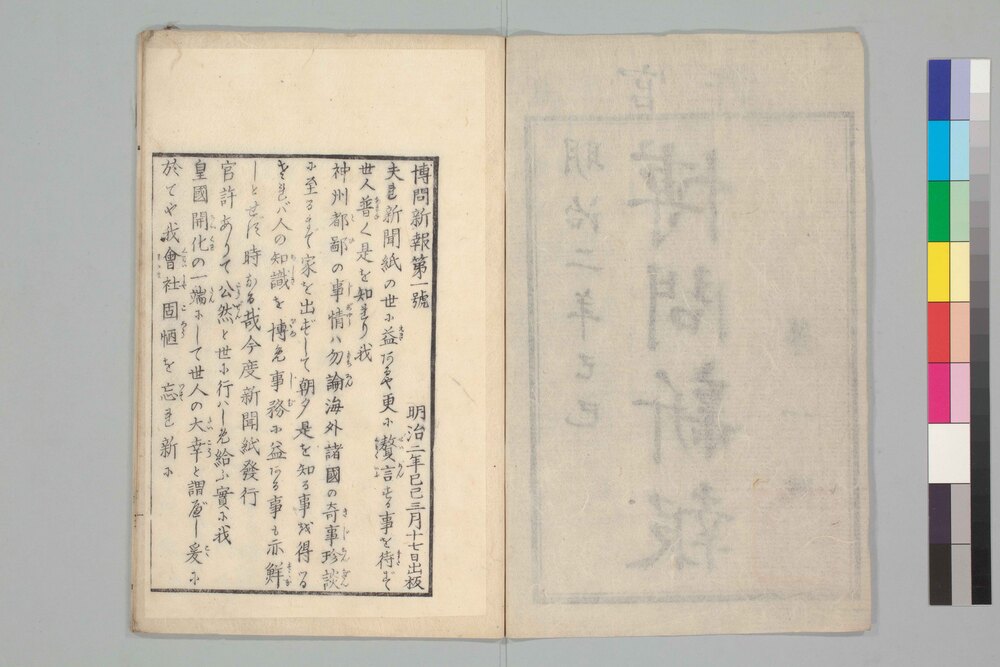 博問新報第一號
明治二年巳己三月十七日出板
夫れ新聞紙の世に益ある更に贅言する事を待ず
世人普く是を知れり我
神州都鄙の事情ハ勿論海外諸國の奇事珍談
に至るまで家を出ずして朝夕是を知る事を得る
されバ人の知識を博め事務に益ある事も亦鮮
しとせず時なる哉今度新聞紙發行
官許ありて公然と世に行ハしめ給ふ實に我
皇國開化の一端にして世人の大幸と謂べし爰に
於てや我會社固陋を忘れ新に
官
明治二年己巳
博問新報